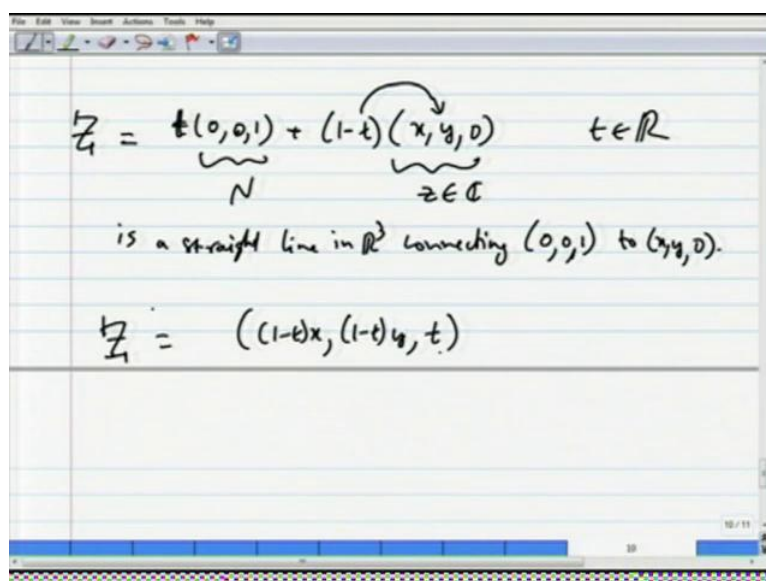 File Edit View Insert Actions Tools Help
Z = t(0,0,1) + (1-t)(x,y,0) t∈ℝ
N z∈ℂ
is a straight line in ℝ³ connecting (0,0,1) to (x,y,0).
Z = ((1-t)x, (1-t)y, t)
10/11
10